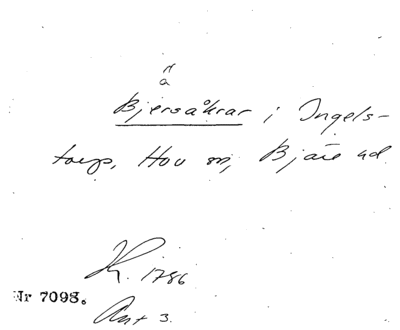 Bjersåkrar i Ingels-
torp, Hov sn, Bjäre hd.
K. 1786
Nr 7098.
Ant 3.